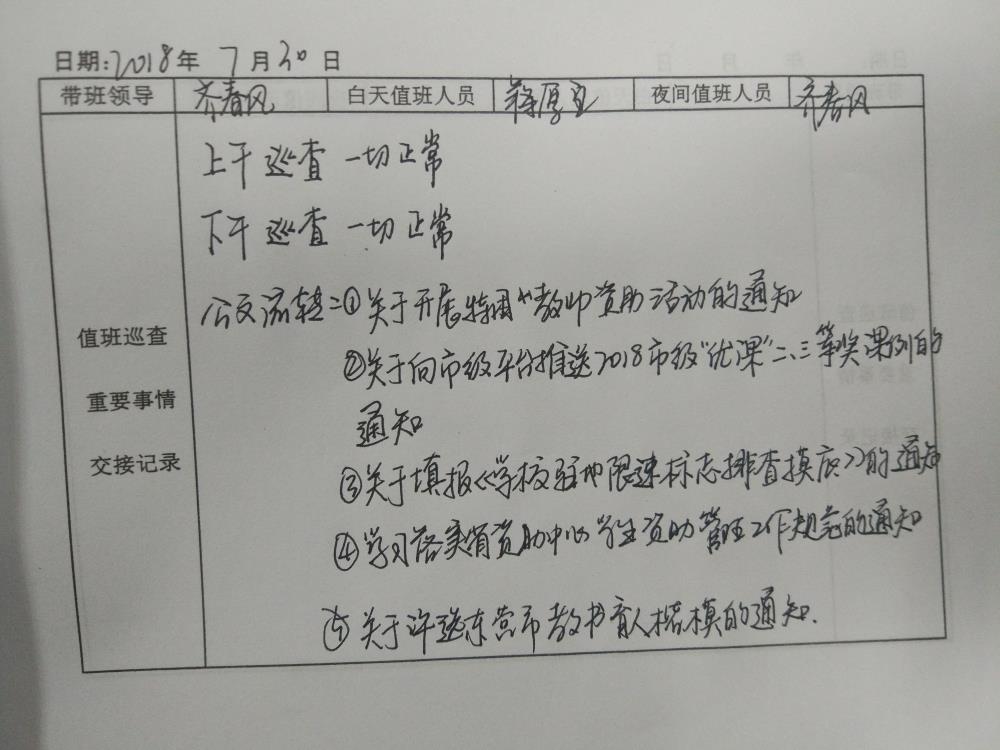 日期:2018年 7月30日
带班领导 齐春风 白天值班人员 蒋厚宝 夜间值班人员 齐春风
上午 巡查 一切正常
下午 巡查 一切正常
公文流转:①关于开展特困教师资助活动的通知
值班巡查
②关于向市级平台推送2018市级"优课"二、三等奖课例的
通知
重要事情
交接记录
③关于填报《学校驻地限速标志排查摸底》的通知
④学习落实省资助中心学生资助管理工作规范的通知
⑤关于评选东营市教书育人楷模的通知.